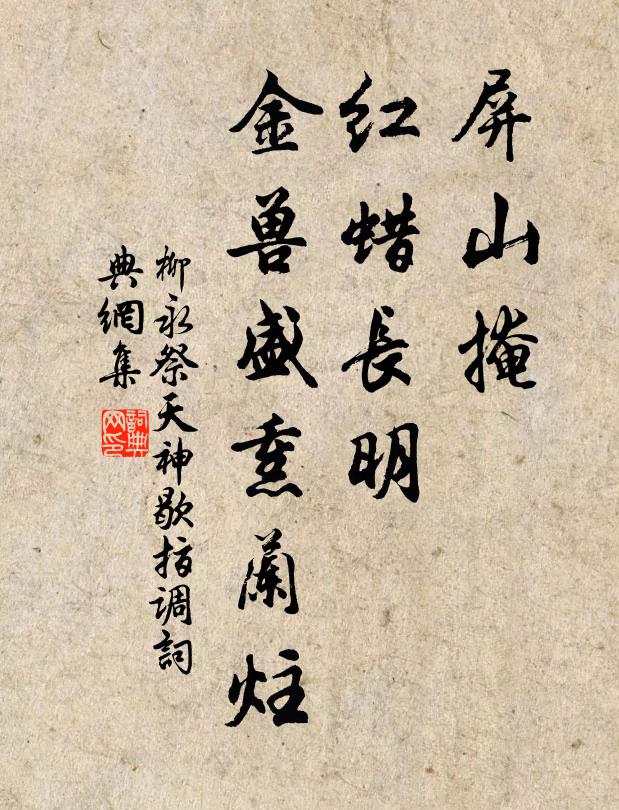 屏山掩
红蜡長明
金兽盛熏蘭炷
柳永祭天神歇指调詞
典網集
詞典网印